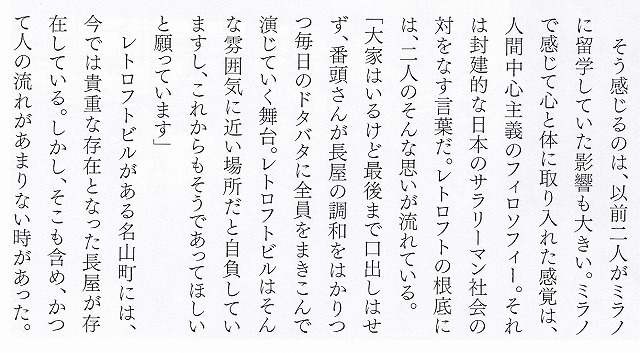 そう感じるのは、以前二人がミラノ
に留学していた影響も大きい。ミラノ
で感じて心と体に取り入れた感覚は、
人間中心主義のフィロソフィー。それ
は封建的な日本のサラリーマン社会の
対をなす言葉だ。レトロフトの根底に
は、二人のそんな思いが流れている。
「大家はいるけど最後まで口出しはせ
ず、番頭さんが長屋の調和をはかりつ
つ毎日のドタバタに全員をまきこんで
演じていく舞台。レトロフトビルはそん
な雰囲気に近い場所だと自負してい
ますし、これからもそうであってほしい
と願っています」
レトロフトビルがある名山町には、
今では貴重な存在となった長屋が存
在している。しかし、そこも含め、かつ
て人の流れがあまりない時があった。